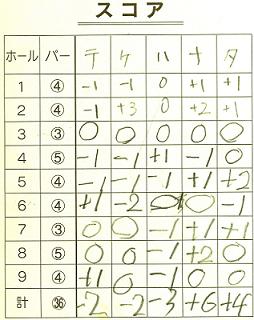 スコア
ホール パー テ ケ ハ ナ タ
1 ④ -1 -1 0 +1 +1
2 ④ -1 +3 0 +2 +1
3 ③ 0 0 0 0 0
4 ⑤ -1 -1 +1 -1 0
5 ④ -1 -1 -1 +1 +2
6 ④ +1 -2 0 0 -1
7 ③ 0 0 -1 +1 +1
8 ⑤ 0 0 -1 +2 0
9 ④ +1 0 -1 0 0
計 ㊱ -2 -2 -3 +6 +4